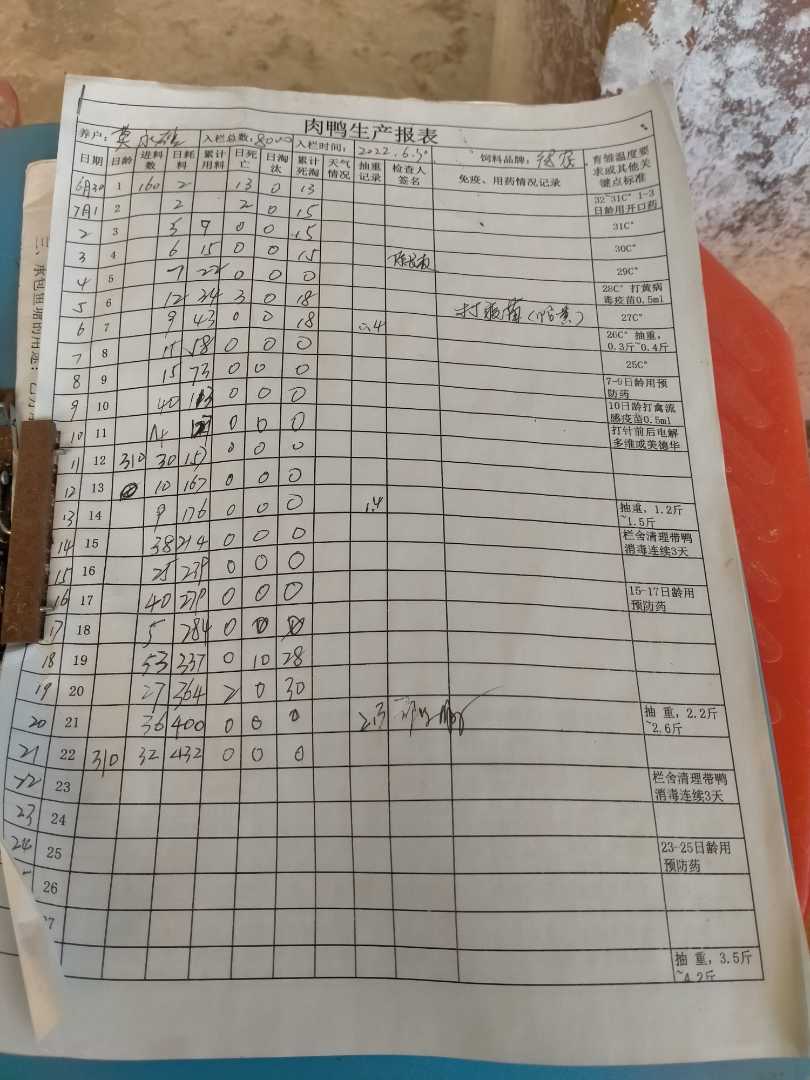 肉鸭生产报表
养户: 莫永 入栏总数: 8000 入栏时间: 2022.6.30. 饲料品牌:
日期 日龄 进料数 日耗料 累计用料 日死亡 日淘汰 累计死淘 天气情况 抽重记录 检查人签名 免疫、用药情况记录 育雏温度要求或其他关键点标准
6月30 1 160 2 13 0 13
7月1 2 2 2 0 15 32~31C° 1-3日龄用开口药
2 3 5 9 0 0 15 31C°
3 4 6 15 0 0 15 30C°
4 5 7 22 0 0 0 29C°
5 6 12 34 3 0 18 28C° 打黄病毒疫苗0.5ml
6 7 9 43 0 0 18 0.4 27C°
7 8 15 58 0 0 0 26C° 抽重,0.3斤~0.4斤
8 9 15 73 0 0 0 25C°
9 10 40 113 0 0 0 7-9日龄用预防药
10 11 14 127 0 0 0 10日龄打禽流感疫苗0.5ml
11 12 310 30 157 0 0 0 打针前后电解多维或美德华
12 13 10 167 0 0 0
13 14 9 176 0 0 0 1.4 抽重,1.2斤~1.5斤
14 15 38 214 0 0 0 栏舍清理带鸭消毒连续3天
15 16 25 239 0 0 0
16 17 40 279 0 0 0 15-17日龄用预防药
17 18 5 284 0 0
18 19 53 337 0 10 28
19 20 27 364 2 0 30
20 21 36 400 0 0 0 2.3 抽 重,2.2斤~2.6斤
21 22 310 32 432 0 0 0
22 23 栏舍清理带鸭消毒连续3天
23 24
24 25 23-25日龄用预防药
26
抽 重,3.5斤~4.2斤